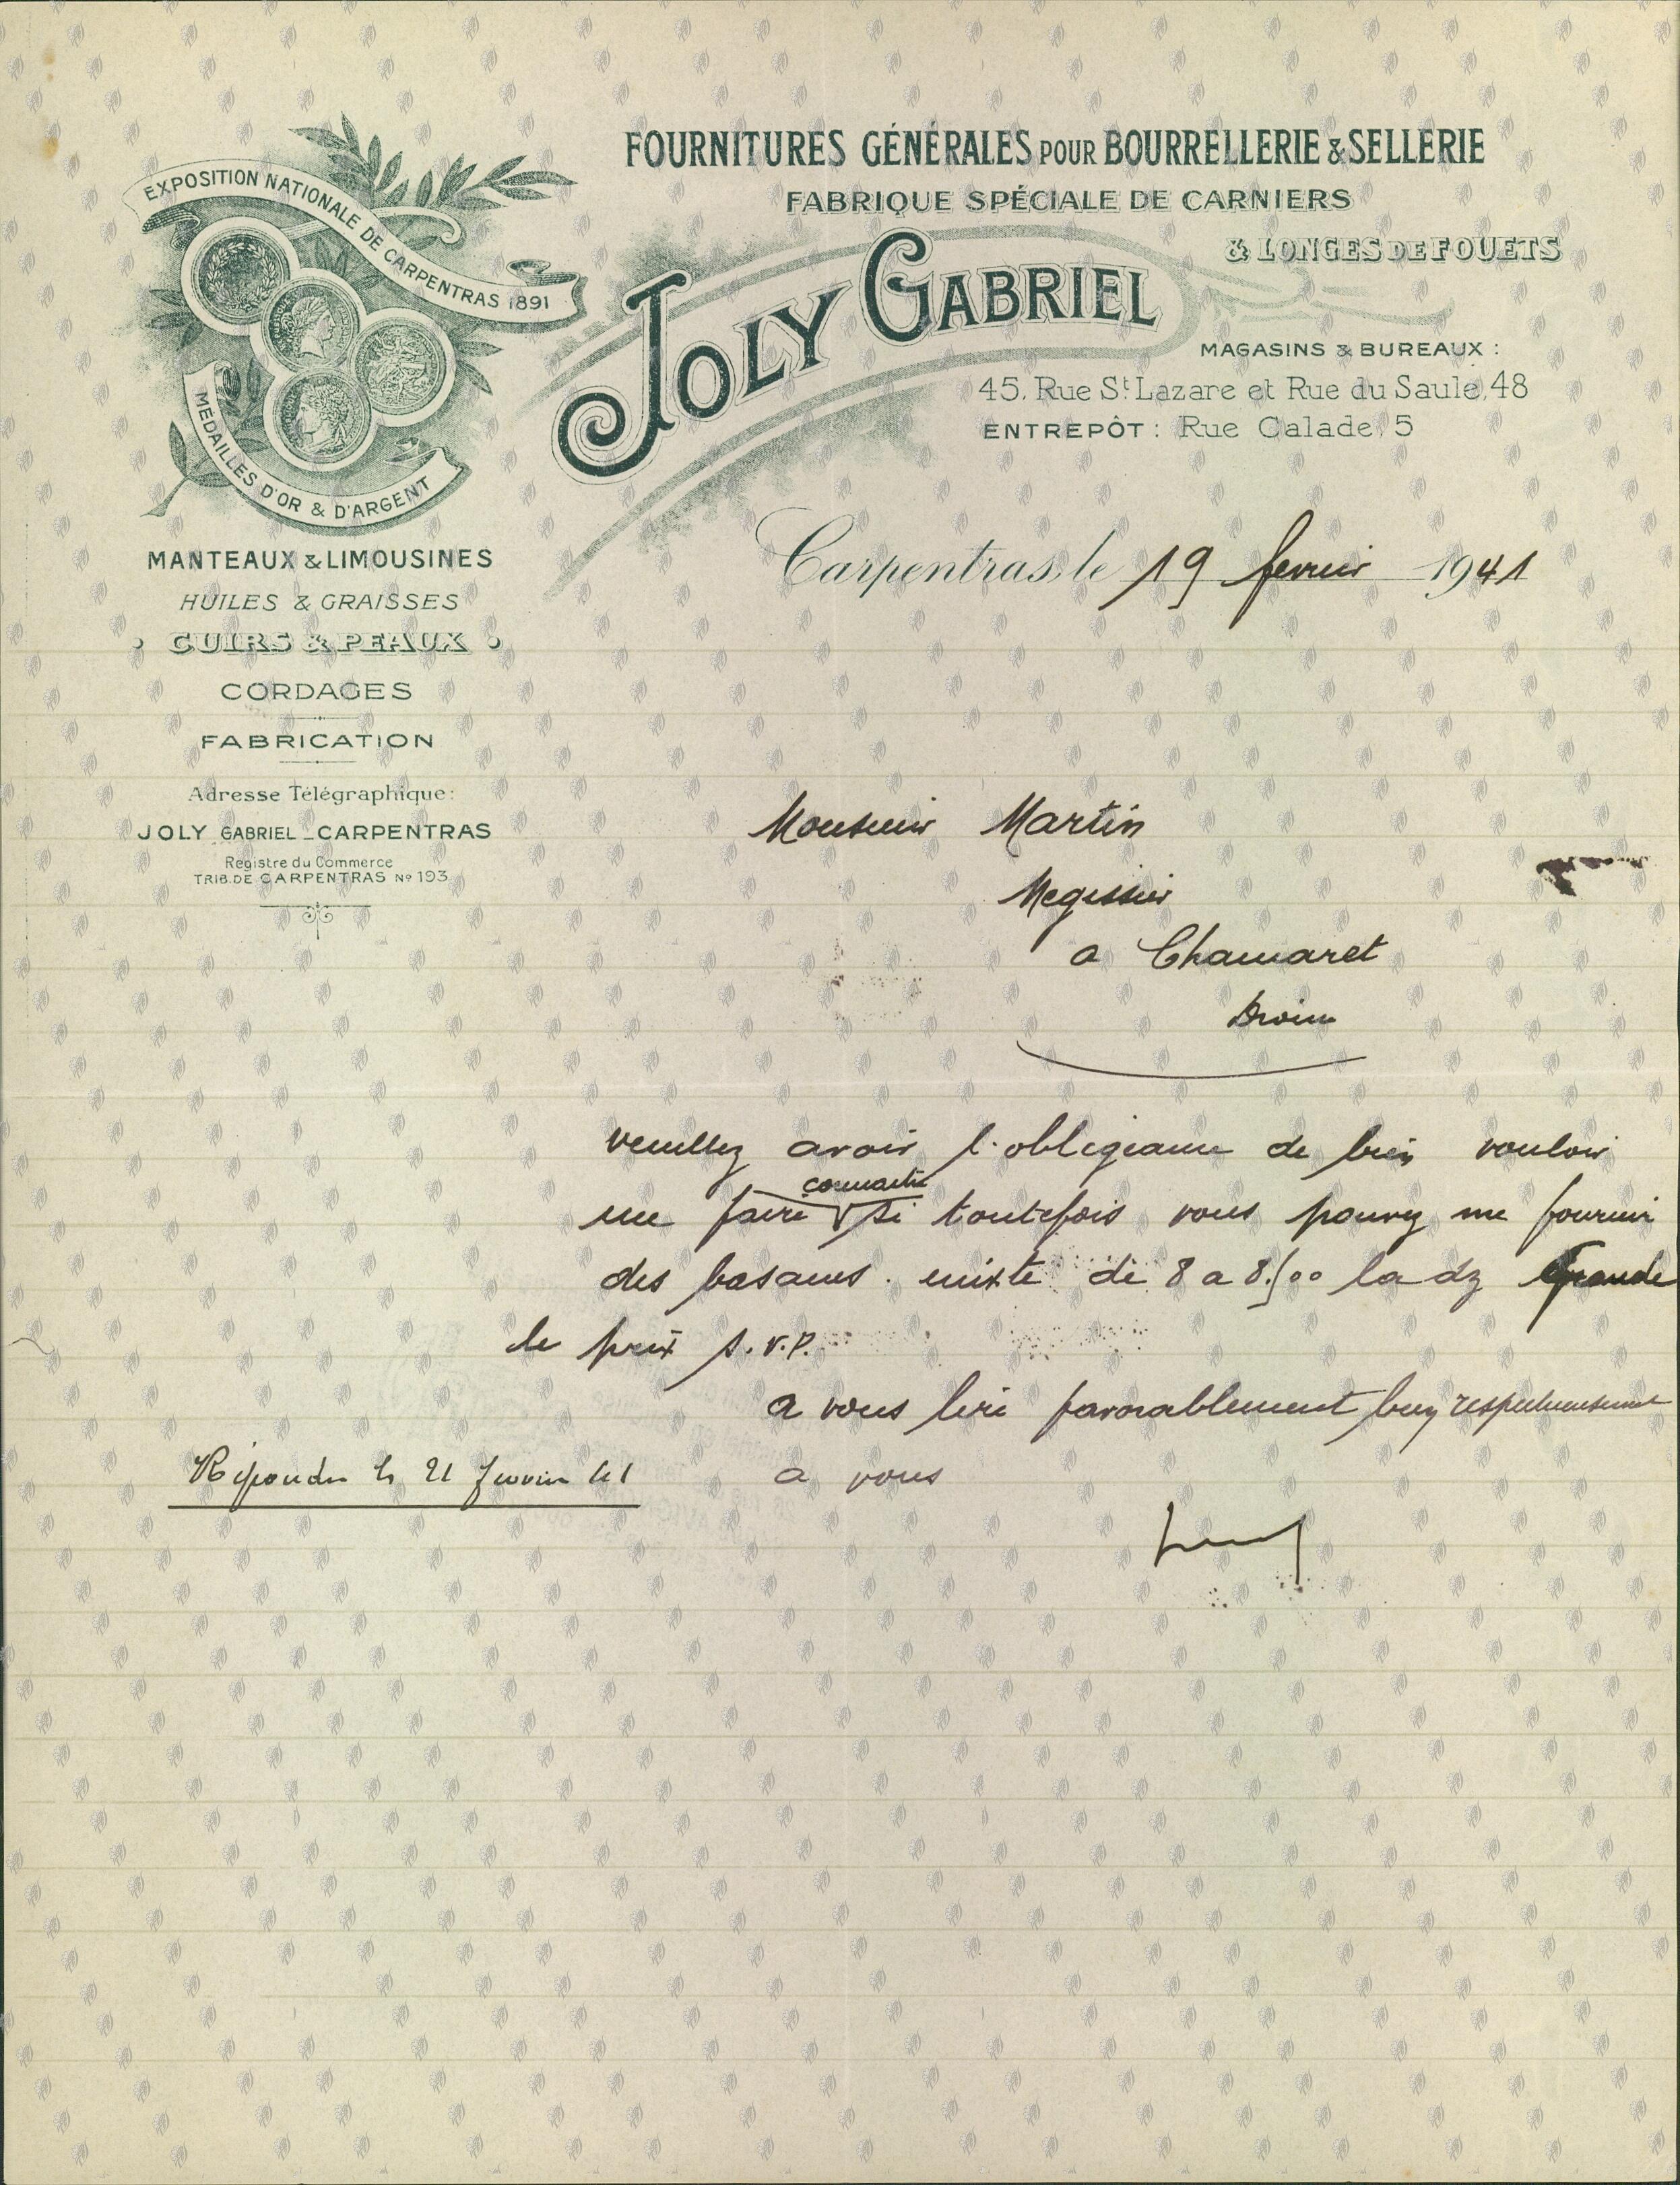 FOURNITURES GÉNÉRALES POUR BOURRELLERIE & SELLERIE
FABRIQUE SPÉCIALE DE CARNIERS
& LONGES DE FOUETS
JOLY GABRIEL
EXPOSITION NATIONALE DE CARPENTRAS 1891
MÉDAILLES D'OR & D'ARGENT
MAGASINS & BUREAUX :
45, Rue St Lazare et Rue du Saule, 48
ENTREPÔT : Rue Calade, 5
Carpentras, le 19 fevrier 1941
MANTEAUX & LIMOUSINES
HUILES & GRAISSES
CUIRS & PEAUX
CORDAGES
FABRICATION
Adresse Télégraphique:
JOLY GABRIEL _ CARPENTRAS
Registre du Commerce
TRIB. DE CARPENTRAS No 193
Monsieur Martin
Megissier
a Chamaret
Drome
veuillez avoir l'obligeance de bien vouloir
me faire connaitre si toutefois vous pouvez me fournir
des basanes mixte de 8 a 8.500 la dz Grande
le prix s.v.P.
a vous lire favorablement bien respectueusement
a vous
Répondu le 21 fevrier 41